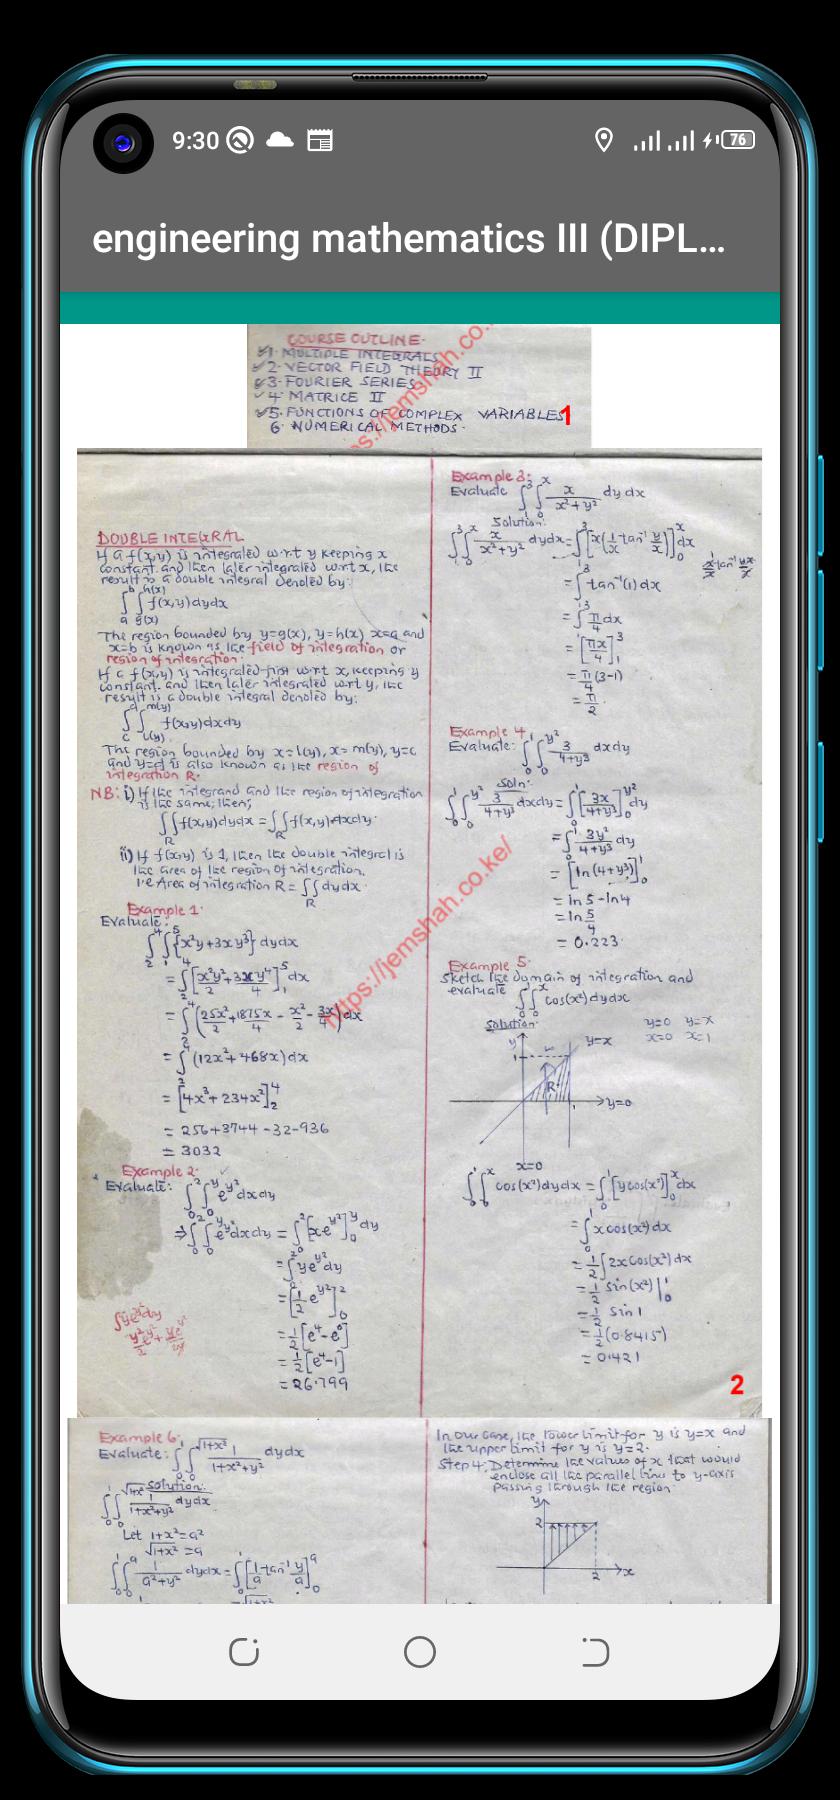 9:30
76
engineering mathematics III (DIPL...
COURSE OUTLINE.
1. MULTIPLE INTEGRALS
2. VECTOR FIELD THEORY II
3. FOURIER SERIES
4. MATRICE II
5. FUNCTIONS OF COMPLEX VARIABLES
6. NUMERICAL METHODS.
1
DOUBLE INTEGRAL
If a f(x,y) is integrated w.r.t y keeping x
constant and then later integrated w.r.t x, the
result is a double integral denoted by:
∫_a^b ∫_{g(x)}^{h(x)} f(x,y)dydx
The region bounded by y=g(x), y=h(x) x=a and
x=b is known as the field of integration or
region of integration.
If a f(x,y) is integrated first w.r.t x, keeping y
constant and then later integrated w.r.t y, the
result is a double integral denoted by:
∫_c^d ∫_{l(y)}^{m(y)} f(x,y)dxdy
The region bounded by x=l(y), x=m(y), y=c
and y=d is also known as the region of
integration R.
NB: i) If the integrand and the region of integration
is the same, then;
∫∫_R f(x,y)dydx = ∫∫_R f(x,y)dxdy.
ii) If f(x,y) is 1, then the double integral is
the area of the region of integration.
i.e Area of integration R = ∫∫_R dydx.
Example 1.
Evaluate:
∫_2^4 ∫_1^5 {x²y+3xy³} dydx
= ∫_2^4 [x²y²/2 + 3xy⁴/4]_1^5 dx
= ∫_2^4 (25x²/2 + 1875x/4 - x²/2 - 3x/4) dx
= ∫_2^4 (12x²+468x)dx
= [4x³+234x²]_2^4
= 256+3744-32-936
= 3032
Example 2.
Evaluate: ∫_0^2 ∫_0^y e^{y²} dxdy
⇒ ∫_0^2 ∫_0^y e^{y²} dxdy = ∫_0^2 [xe^{y²}]_0^y dy
= ∫_0^2 ye^{y²} dy
= [1/2 e^{y²}]_0^2
= 1/2[e⁴-e⁰]
= 1/2[e⁴-1]
= 26.799
Example 3:
Evaluate ∫_1^3 ∫_0^x x/(x²+y²) dydx
Solution:
∫_1^3 ∫_0^x x/(x²+y²) dydx = ∫_1^3 [x(1/x tan⁻¹ y/x)]_0^x dx
= ∫_1^3 tan⁻¹(1) dx
= ∫_1^3 π/4 dx
= [πx/4]_1^3
= π/4 (3-1)
= π/2
Example 4
Evaluate: ∫_0^1 ∫_0^{y²} 3/(4+y³) dxdy
Soln:
∫_0^1 ∫_0^{y²} 3/(4+y³) dxdy = ∫_0^1 [3x/(4+y³)]_0^{y²} dy
= ∫_0^1 3y²/(4+y³) dy
= [ln(4+y³)]_0^1
= ln5-ln4
= ln 5/4
= 0.223.
Example 5.
Sketch the domain of integration and
evaluate ∫_0^1 ∫_0^x cos(x²)dydx
Solution:
y=0 y=x
x=0 x=1
y
y=x
1
R
1
y=0
x=0
∫_0^1 ∫_0^x cos(x²)dydx = ∫_0^1 [ycos(x²)]_0^x dx
= ∫_0^1 xcos(x²)dx
= 1/2 ∫ 2xcos(x²)dx
= 1/2 sin(x²)|_0^1
= 1/2 sin1
= 1/2 (0.8415)
= 0.421
2
https://jemshah.co.ke/
Example 6.
Evaluate: ∫_0^1 ∫_0^{√(1+x²)} 1/(1+x²+y²) dydx
Solution:
∫_0^1 ∫_0^{√(1+x²)} 1/(1+x²+y²) dydx
Let 1+x²=a²
√(1+x²) =a
∫_0^1 ∫_0^a 1/(a²+y²) dydx = ∫_0^1 [1/a tan⁻¹ y/a]_0^a
In our case, the lower limit for y is y=x and
the upper limit for y is y=2.
Step 4: Determine the values of x that would
enclose all the parallel line to y-axis
passing through the region.
y
2
2
x